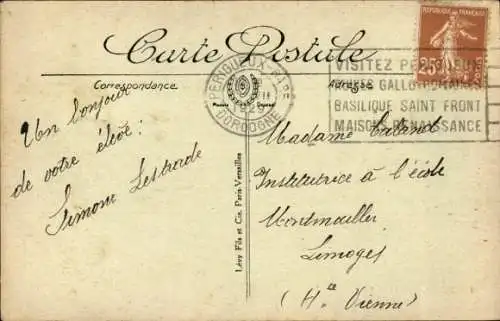 Carte Postale
RÉPUBLIQUE FRANÇAISE
25c
PÉRIGUEUX-GARE
29
DORDOGNE
VISITEZ PÉRIGUEUX
RUINES GALLO-ROMAINES
BASILIQUE SAINT FRONT
MAISONS RENAISSANCE
Correspondance
Adresse
Un bonjour
de votre élève :
Simone Lestrade
Lévy Fils et Cie, Paris-Versailles
Madame
Institutrice à l'école
Montmailler
Limoges
(Hte Vienne)